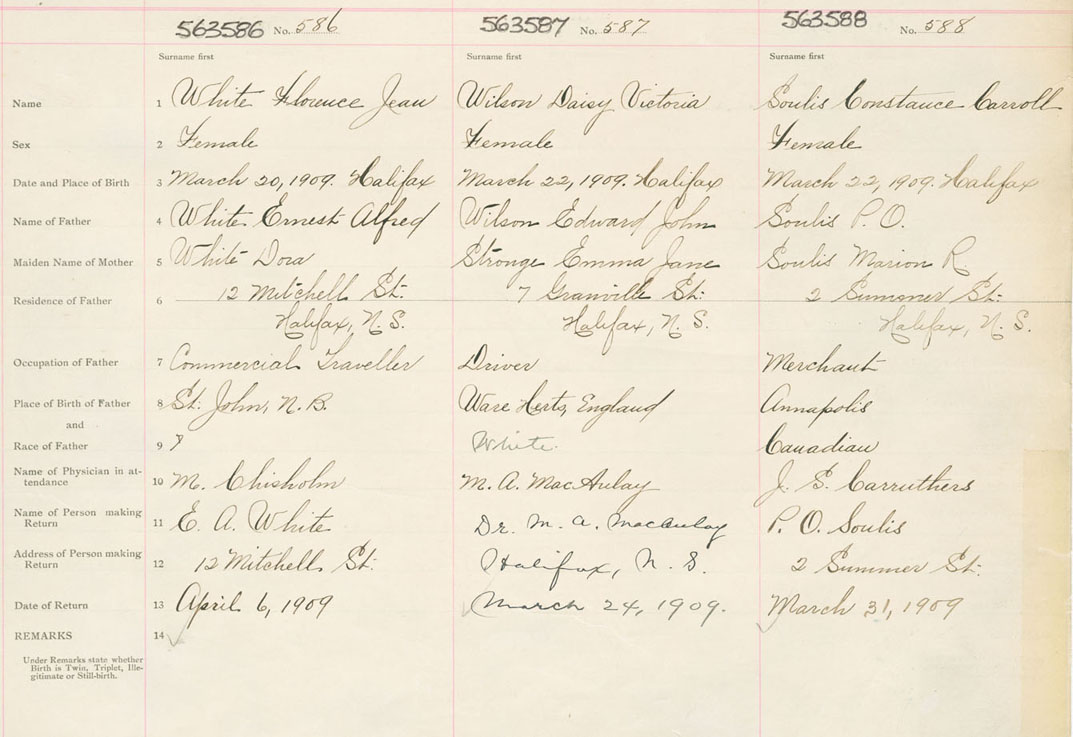 563586 No. 586 563587 No. 587 563588 No. 588
Surname first Surname first Surname first
Name 1 White Florence Jean Wilson Daisy Victoria Soulis Constance Carroll
Sex 2 Female Female Female
Date and Place of Birth 3 March 20, 1909. Halifax March 22, 1909. Halifax March 22, 1909. Halifax
Name of Father 4 White Ernest Alfred Wilson Edward John Soulis P. O.
Maiden Name of Mother 5 White Dora Stronge Emma Jane Soulis Marion R
Residence of Father 6 12 Mitchell St. 7 Granville St. 2 Summer St.
Halifax, N. S. Halifax, N. S. Halifax, N. S.
Occupation of Father 7 Commercial Traveller Driver Merchant
Place of Birth of Father 8 St. John, N. B. Ware Herts, England Annapolis
and
Race of Father 9 White. Canadian
Name of Physician in at-
tendance 10 M. Chisholm M. A. MacAulay J. S. Carruthers
Name of Person making
Return 11 E. A. White Dr. M. A. MacAulay P. O. Soulis
Address of Person making
Return 12 12 Mitchell St. Halifax, N. S. 2 Summer St.
Date of Return 13 April 6, 1909 March 24, 1909. March 31, 1909
REMARKS 14
Under Remarks state whether
Birth is Twin, Triplet, Ille-
gitimate or Still-birth.